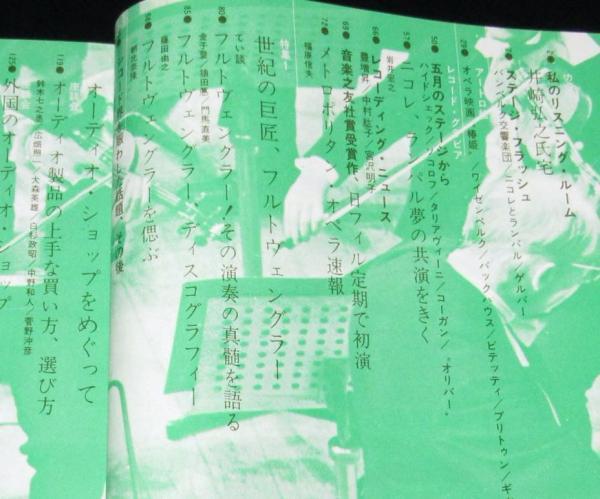 私のリスニング・ルーム
井崎弘之氏宅
ステージ・フラッシュ
バンベルク交響楽団/ニコレとランパル/ゲルバー
29● オペラ映画〝椿姫〟
レコード・グラビア
ワイゼンベルク/バックハウス/ピテッティ/ブリトゥン/ギ
50● 五月のステージから
ハイドシェック/ソコロフ/タリアヴィーニ/コーガン/〝オリバー〟
57● ニコレ、ランパル夢の共演をきく
岩井宏之
66● レコーディング・ニュース
豊増昇/中村紘子/宮沢明子
69● 音楽之友社賞受賞作、日フィル定期で初演
72● メトロポリタン・オペラ速報
福原信夫
特集・1
世紀の巨匠、フルトヴェングラー
80● フルトヴェングラー!その演奏の真髄を語る
てい談
金子登/猿田悳/門馬直美
85● フルトヴェングラー・ディスコグラフィー
藤田由之
94● フルトヴェングラーを偲ぶ
朝比奈隆
賑わした話題、その後
オーディオ・ショップをめぐって
119● オーディオ製品の上手な買い方、選び方
鈴木七之進/広畑照一/大森英雄/白杉政昭/中野和人/菅野沖彦
125● 外国のオーディオ・ショップ